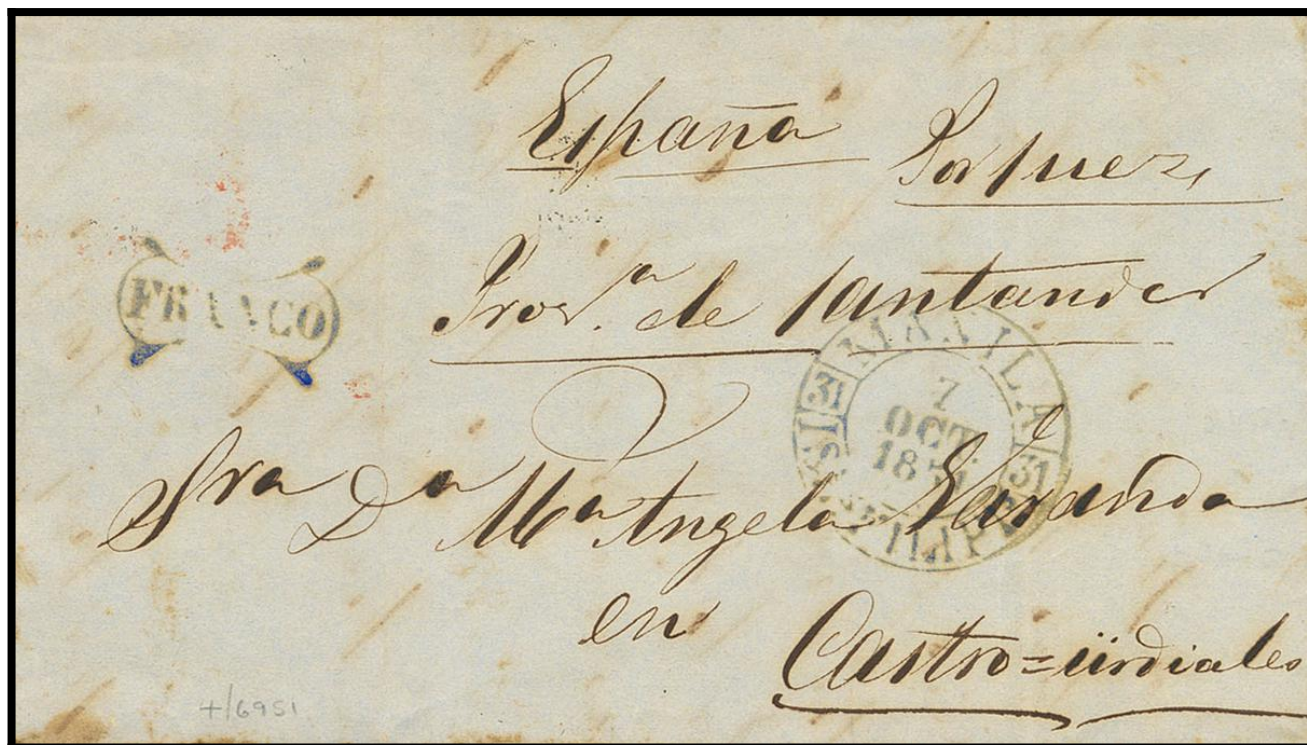 España Por Suez,
FRANCO
Prov.ª de Santander
MANILA
31 31
7
OCT
FILIPS
Sra Dª Mª Angela
en
Castro=ürdiales
+/6951